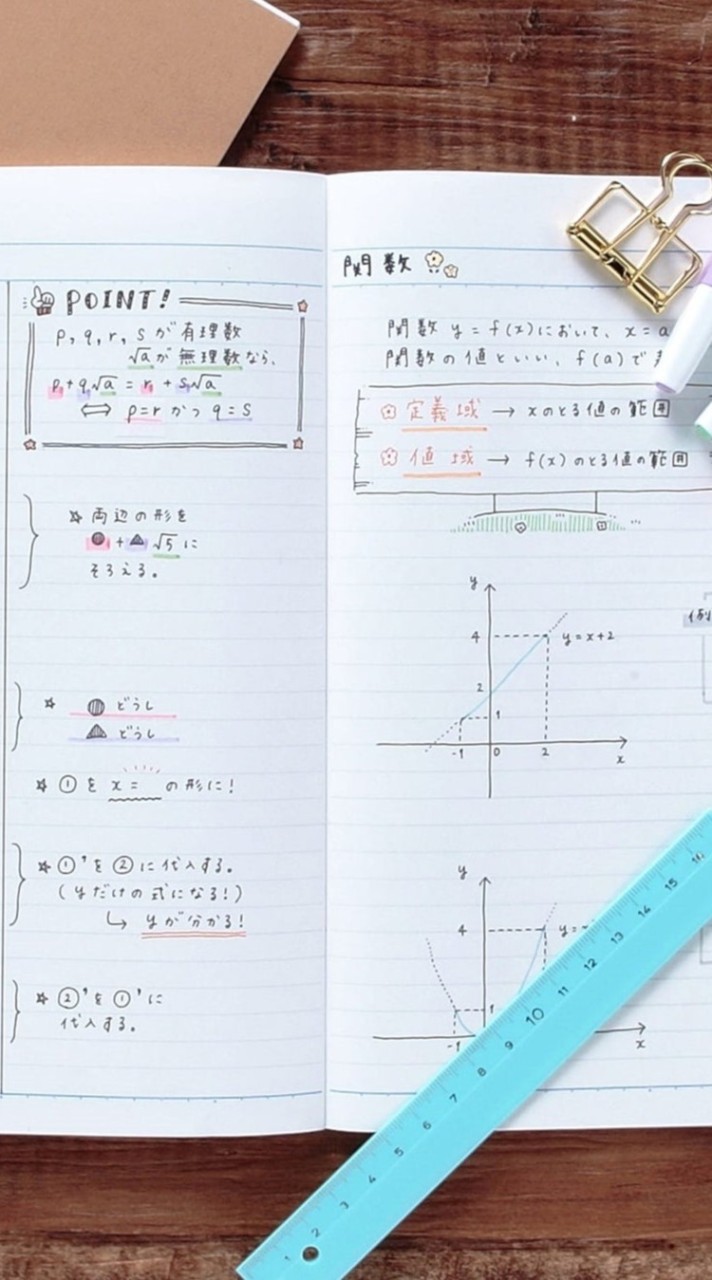 POINT!
p, q, r, s が 有理数
√a が 無理数 なら、
p + q√a = r + s√a
⟺ p=r かつ q=s
☆ 両辺の形を
● + ▲ √5 に
そろえる。
☆ ● どうし
▲ どうし
☆ ① を x = の形に!
☆ ①' を ② に代入する。
(yだけの式になる!)
↳ yが分かる!
☆ ②' を ①' に
代入する。
関数
関数 y = f(x)において、x = a
関数の値といい、f(a)で
定義域 → xのとる値の範囲
値域 → f(x)のとる値の範囲
例
y
4
y = x+2
2
1
-1 0 2 x
y
4 y =
1
-1 x
1 2 3 4 5 6 7 8 9 10 11 12 13 14 15 16